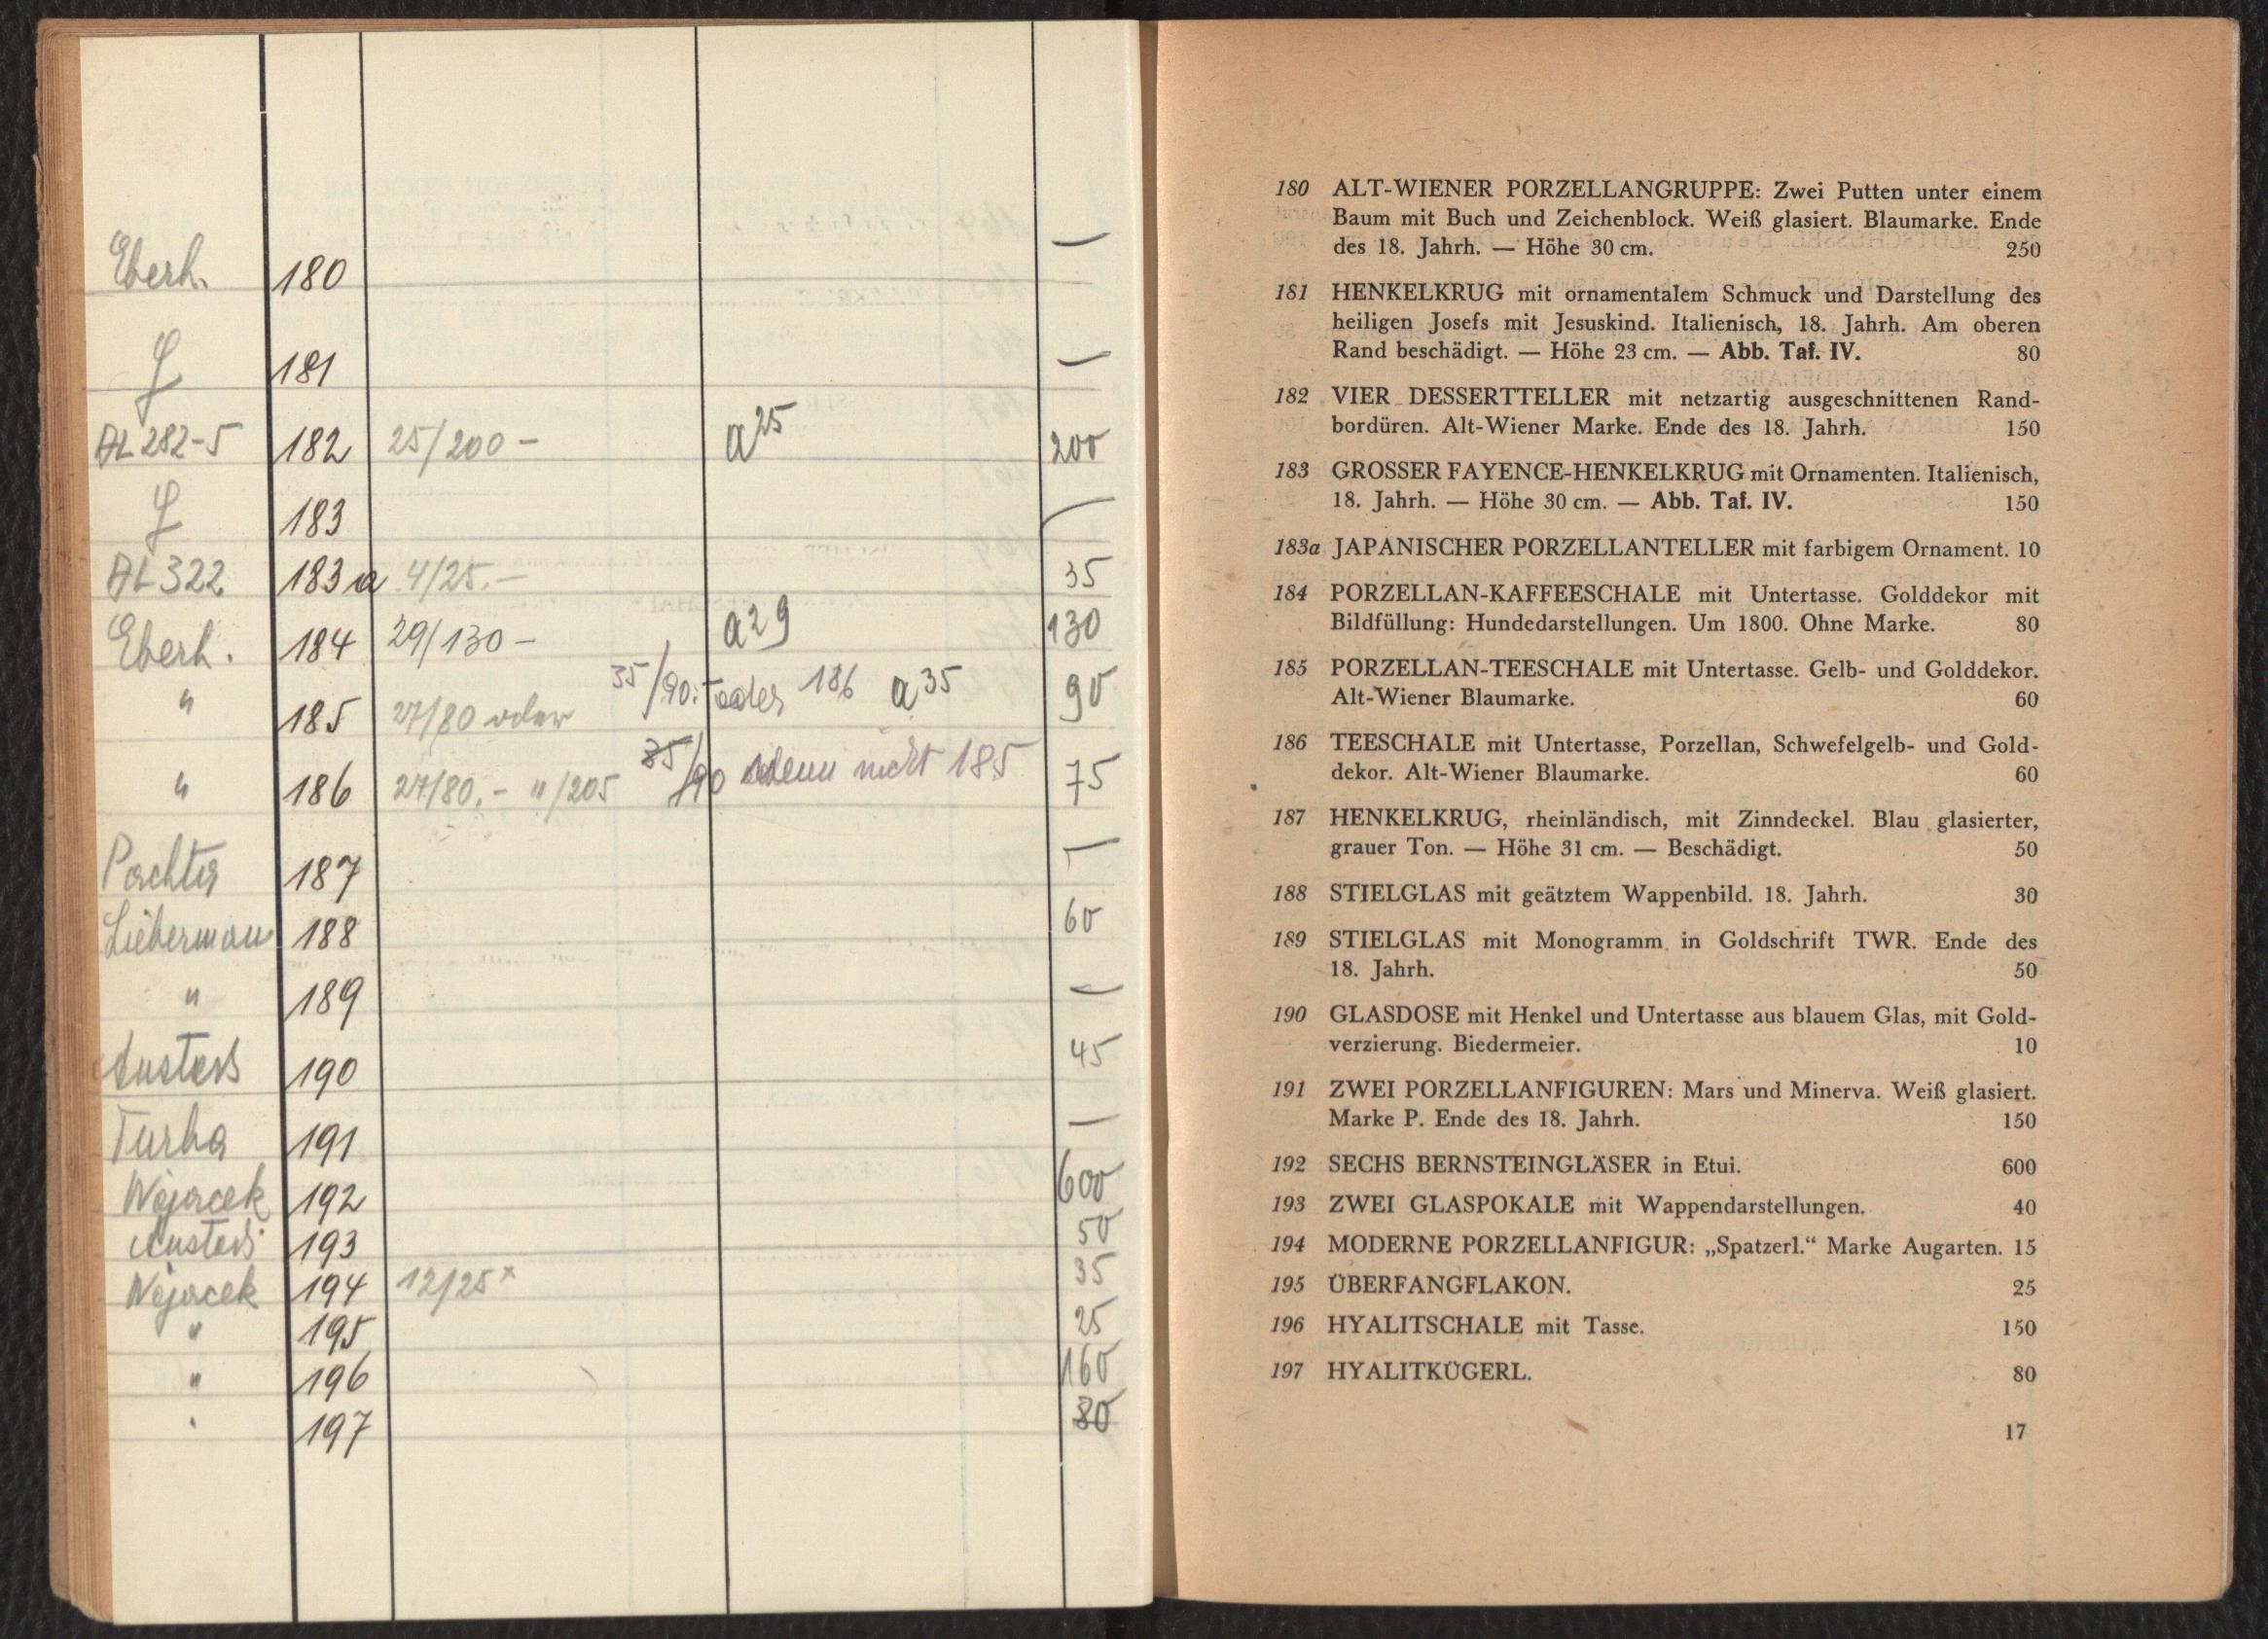 Eberh. 180 —
181 —
AL 282-5 182 25/200 – a 25 200
183 —
AL 322 183a 4/25.– 35
Eberh. 184 29/130 – a 29 130
" 185 27/80 oder 35/90.– oder 186 a 35 90
" 186 27/80.– "/205 35/90 wenn nicht 185 75
187 —
Lieberman 188 60
" 189 —
190 45
Turba 191 —
Wojacek 192 600
193 50
Wojacek 194 12/25 x 35
" 195 25
" 196 160
" 197 80
180 ALT-WIENER PORZELLANGRUPPE: Zwei Putten unter einem
Baum mit Buch und Zeichenblock. Weiß glasiert. Blaumarke. Ende
des 18. Jahrh. — Höhe 30 cm. 250
181 HENKELKRUG mit ornamentalem Schmuck und Darstellung des
heiligen Josefs mit Jesuskind. Italienisch, 18. Jahrh. Am oberen
Rand beschädigt. — Höhe 23 cm. — Abb. Taf. IV. 80
182 VIER DESSERTTELLER mit netzartig ausgeschnittenen Rand-
bordüren. Alt-Wiener Marke. Ende des 18. Jahrh. 150
183 GROSSER FAYENCE-HENKELKRUG mit Ornamenten. Italienisch,
18. Jahrh. — Höhe 30 cm. — Abb. Taf. IV. 150
183a JAPANISCHER PORZELLANTELLER mit farbigem Ornament. 10
184 PORZELLAN-KAFFEESCHALE mit Untertasse. Golddekor mit
Bildfüllung: Hundedarstellungen. Um 1800. Ohne Marke. 80
185 PORZELLAN-TEESCHALE mit Untertasse. Gelb- und Golddekor.
Alt-Wiener Blaumarke. 60
186 TEESCHALE mit Untertasse, Porzellan, Schwefelgelb- und Gold-
dekor. Alt-Wiener Blaumarke. 60
187 HENKELKRUG, rheinländisch, mit Zinndeckel. Blau glasierter,
grauer Ton. — Höhe 31 cm. — Beschädigt. 50
188 STIELGLAS mit geätztem Wappenbild. 18. Jahrh. 30
189 STIELGLAS mit Monogramm in Goldschrift TWR. Ende des
18. Jahrh. 50
190 GLASDOSE mit Henkel und Untertasse aus blauem Glas, mit Gold-
verzierung. Biedermeier. 10
191 ZWEI PORZELLANFIGUREN: Mars und Minerva. Weiß glasiert.
Marke P. Ende des 18. Jahrh. 150
192 SECHS BERNSTEINGLÄSER in Etui. 600
193 ZWEI GLASPOKALE mit Wappendarstellungen. 40
194 MODERNE PORZELLANFIGUR: „Spatzerl.“ Marke Augarten. 15
195 ÜBERFANGFLAKON. 25
196 HYALITSCHALE mit Tasse. 150
197 HYALITKÜGERL. 80
17